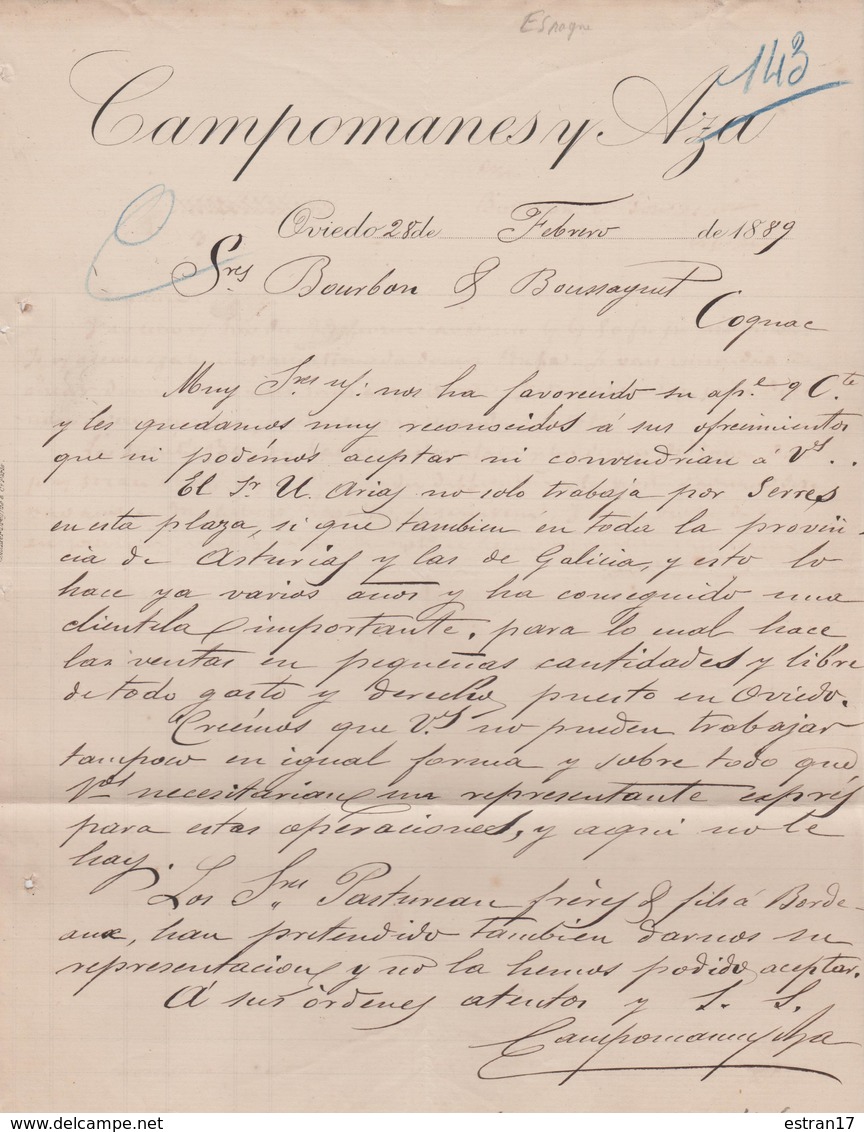 Espagne
143
Campomanes y Aza
Oviedo 28 de Febrero de 1889
Sres Bourbon & Boussaguet
Cognac
Muy Sres ns/: nos ha favorecido su ap.e 9 C.te
y les quedamos muy reconocidos á sus ofrecimientos
que ni podémos aceptar ni convendrian á Vs..
El Sr U. Arias no solo trabaja por Serres
en esta plaza, si que tambien en toda la provin-
cia de Asturias y las de Galicia, y esto lo
hace ya varios años y ha conseguido una
clientela importante, para lo cual hace
las ventas en pequeñas cantidades y libre
de todo gasto y derecho, puesto en Oviedo.
Creémos que Vs no pueden trabajar
tampoco en igual forma y sobre todo que
Vds necesitarian un representante exprés
para estas operaciones, y aqui no le
hay.
Los Sres Pastureau frères & fils á Borde-
aux, han pretendido tambien darnos su
representacion y no la hemos podido aceptar.
Á sus órdenes atentos y S. S.
Campomanes y Aza
estran17